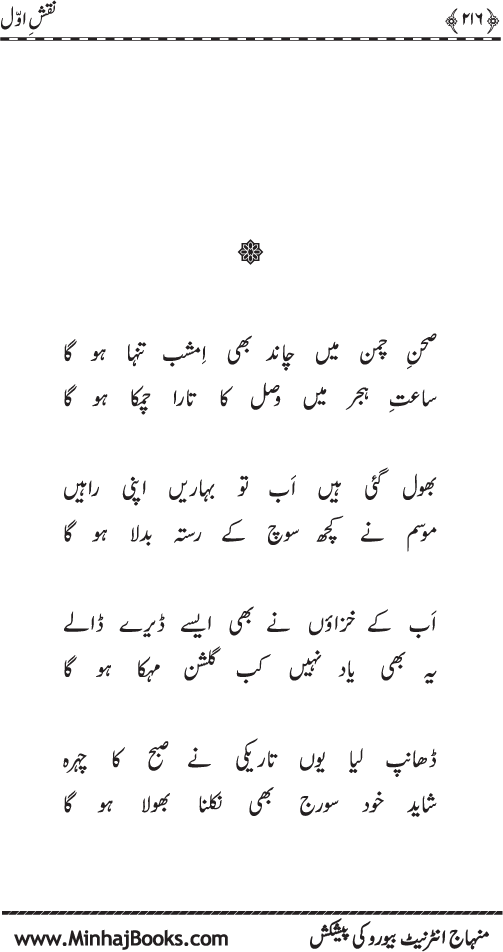 ﴿۲۱۶﴾ نقشِ اوّل
صحنِ چمن میں چاند بھی اِمشب تنہا ہو گا
ساعتِ ہجر میں وصل کا تارا چمکا ہو گا
بھول گئی ہیں اَب تو بہاریں اپنی راہیں
موسم نے کچھ سوچ کے رستہ بدلا ہو گا
اَب کے خزاؤں نے بھی ایسے ڈیرے ڈالے
یہ بھی یاد نہیں کب گلشن مہکا ہو گا
ڈھانپ لیا یوں تاریکی نے صبح کا چہرہ
شاید خود سورج بھی نکلنا بھولا ہو گا
منہاج انٹرنیٹ بیورو کی پیشکش www.MinhajBooks.com